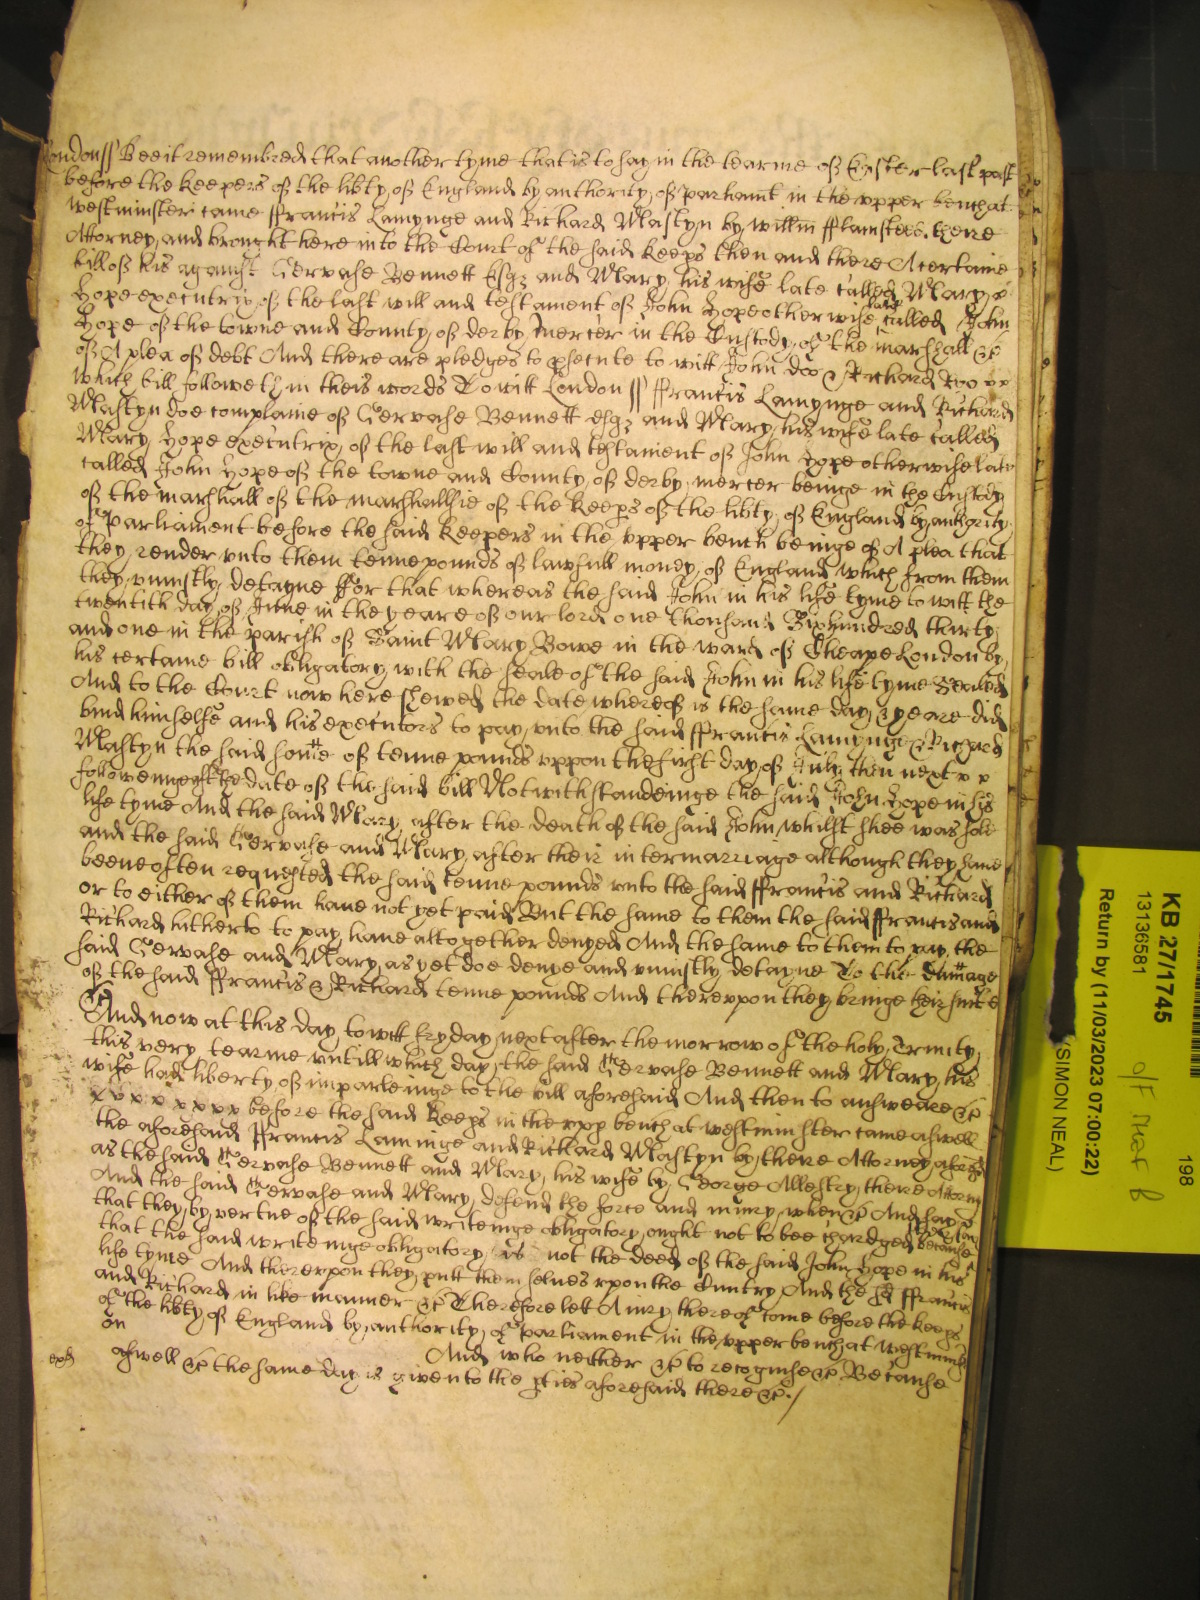 London ss Bee it remembred that another tyme that is to say in the tearme of Easter last past
before the keepers of the libty of England by authority of parliamt in the vpper bench at
westminster came ffrancis Lamynge and Richard Mastyn by willm fflamsteed there
Attorney and brought here into the Court of the said keeps then and there A certaine
bill of his against Gervase Bennett Esqz and Mary his wife late called Mary x
Hope executrix of the last will and testament of John Hope otherwise late called John
Hope of the towne and County of derby mercer in the Custody of the marshall &c
of A plea of debt And there are pledges to psecute to witt John doo & Richard Roo xx
which bill followeth in theis words To witt London ss ffrancis Lamynge and Richard
Mastyn doe complaine of Gervase Bennett esqz and Mary his wife late called
Mary Hope executrix of the last will and testament of John Hope otherwise late
called John Hope of the towne and County of derby mercer beinge in the Custody
of the marshall of the marshallsie of the keeps of the libty of England by authority
of Parliament before the said keepers in the vpper bench beinge of A plea that
they render vnto them tenne pounds of lawfull money of England which from them
they vniustly detayne ffor that whereas the said John in his life tyme to witt the
twentith day of June in the yeare of our lord one thousand Sixhundred thirty
and one in the parish of Saint Mary Bowe in the ward of Cheape London by
his certaine bill obligatory with the seale of the said John in his life tyme Sealed
And to the Court now here shewed the date whereof is the same day & yeare did
bind himselfe and his executors to pay vnto the said ffrancis Lamynge & Richard
Mastyn the said some of tenne pounds vppon the first day of July then next x x
followeinge the date of the said bill Notwithstandeinge the said John Hope in his
life tyme And the said Mary after the death of the said John whilst shee was sole
and the said Gervase and Mary after their intermarriage although they have
beene often requested the said tenne pounds vnto the said ffrancis and Richard
or to either of them have not yet paid But the same to them the said ffrancis and
Richard hitherto to pay have altogether denyed And the same to them to pay the
said Gervase and Mary as yet doe denye and vniustly detayne To the damage
of the said ffrancis & Richard tenne pounds And therevpon they bringe their suite
And now at this day to witt fryday next after the morrow of the holy Trinity
this very tearme vntill which day the said Gervase Bennett and Mary his
wife had liberty of imparleinge to the bill aforesaid And then to answeare &c
x x x x x x x x before the said keeps in the vpp bench at westminster came aswell
the aforesaid ffrancis Laminge and Richard Mastyn by there Attorney aforesd
as the said Gervase Bennett and Mary his wife by George Allestry there Attorny
And the said Gervase and Mary defend the force and iniury when &c And say x
that they by vertue of the said writeinge obligatory ought not to bee chardged because
that the said writeinge obligatory is not the deed of the said John Hope in his
life tyme And therevpon they putt them selves vpon the Cuntry And the sd ffrancis
and Richard in like manner &c Therefore lett A iury thereof come before the keeps
of the libty of England by authority of parliament in the vpper bench at westminstr
on And who neither &c to recognise &c Because
aswell &c the same day is given to the pties aforesaid there &c./
KB 27/1745
13136581
198
Return by (11/03/2023 07:00:22)
(SIMON NEAL)